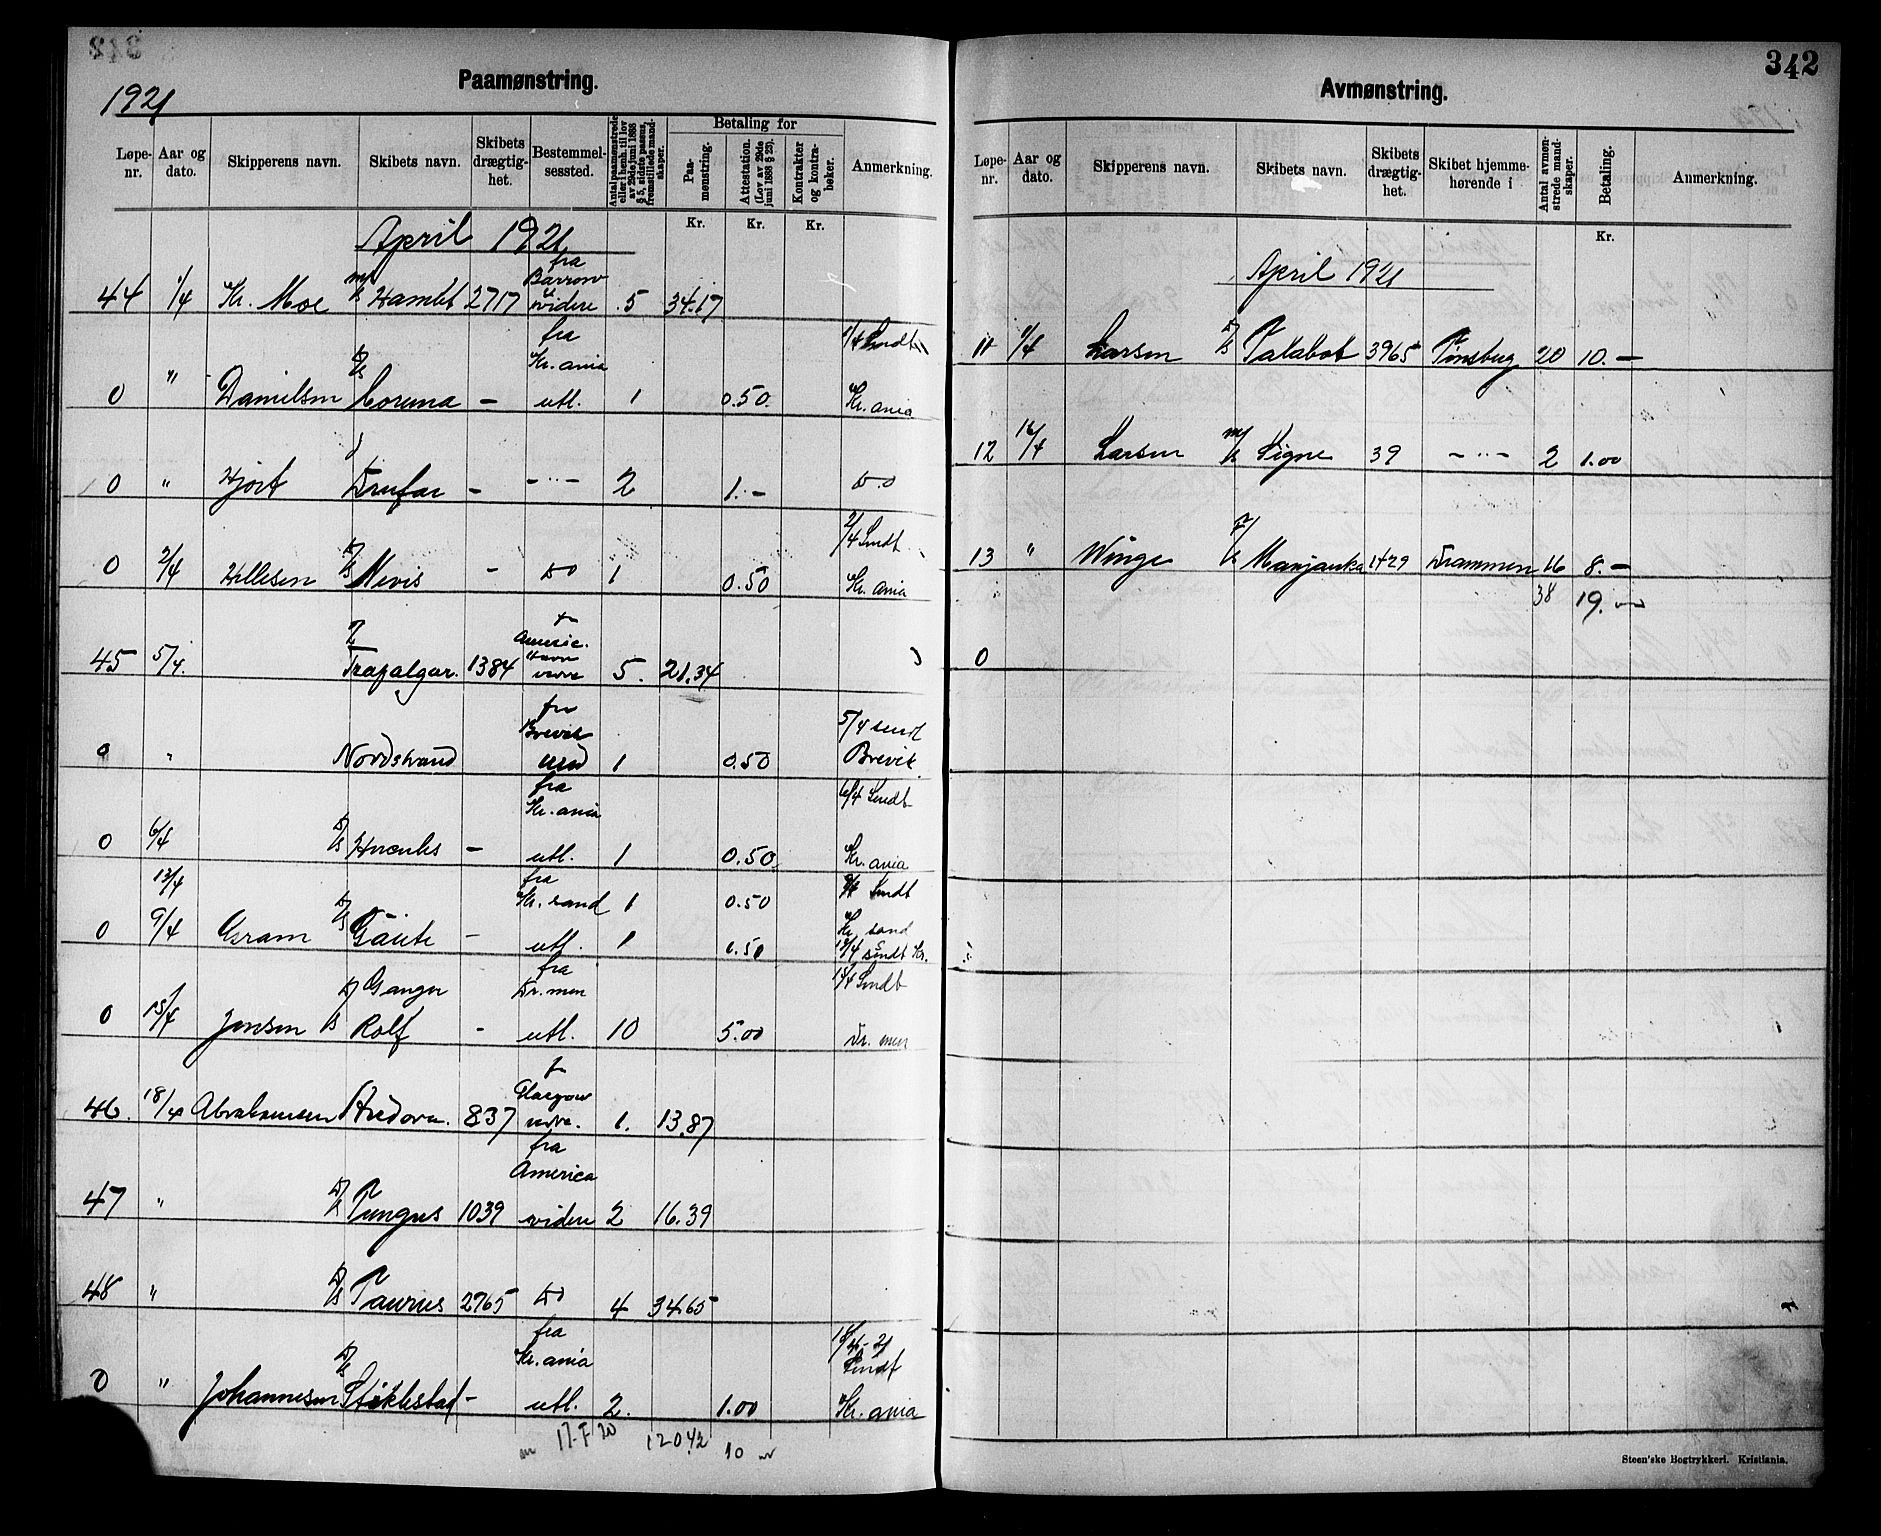 Paamønstring.
1921
Løpe-nr. Aar og dato. Skipperens navn. Skibets navn. Skibets drægtig-het. Bestemmel-sessted. Antal paamønstrede eller i henh. til lov av 29de juni 1888 § 5, sidste passus, fremstillede mand-skaper. Betaling for Paa-mønstring. Attestation. (Lov av 29de juni 1888 § 25). Kontrakter og kontra-bøker. Anmerkning.
Kr. Kr. Kr.
April 1921
fra
Barrow
44 1/4 Kr. Moe m/s Hamlet 2717 videre 5 34.17
fra 1/4 Sendt
Kr. ania
0 " Danielsen D/s Corona - utl. 1 0.50 Kr. ania
0 " Hjort - - " - 2 1.- do
2/4 Sendt
0 2/4 D/s - do 1 0.50 Kr. ania
45 5/4 Trafalgar. 1384 5. 21.34
fra 5/4 sendt
Brevik
0 " Nordstrand 1 0.50 Brevik
fra 6/4 Sendt
Kr. ania
0 6/4 D/s Hercules - utl. 1 0.50 Kr. ania
fra
13/4 Kr. sand 1 0.50 Sendt
Kr. sand
0 9/4 D/s Gaute - utl. 1 0.50 13/4 sendt Kr.
fra 15/4 Sendt
D/s Ganger Dr. men
0 15/4 Jensen Rolf - utl. 10 5.00 Dr. men
f
Glasgow
46. 18/4 Abrahamsen 837 1. 13.87
fra
America
47 " D/s Tungus 1039 videre 2 16.39
48 " D/s Taurus 2765 do 4 34.65
fra
Kr. ania Sendt
0 " Johannesen D/s Stiklestad - utl. 2. 1.00 Kr. ania
120.42 10
Avmønstring.
342
Løpe-nr. Aar og dato. Skipperens navn. Skibets navn. Skibets drægtig-het. Skibet hjemme-hørende i Antal avmøn-strede mand-skaper. Betaling. Anmerkning.
Kr.
April 1921
11 1/4 Larsen D/s Talabot 3965 Tønsberg 20 10.-
12 16/4 Larsen m/s Signe 39 - " - 2 1.00
13 " Winge Manjanka 1429 Drammen 16 8.-
38 19.
0
Steen'ske Bogtrykkeri. Kristiania.